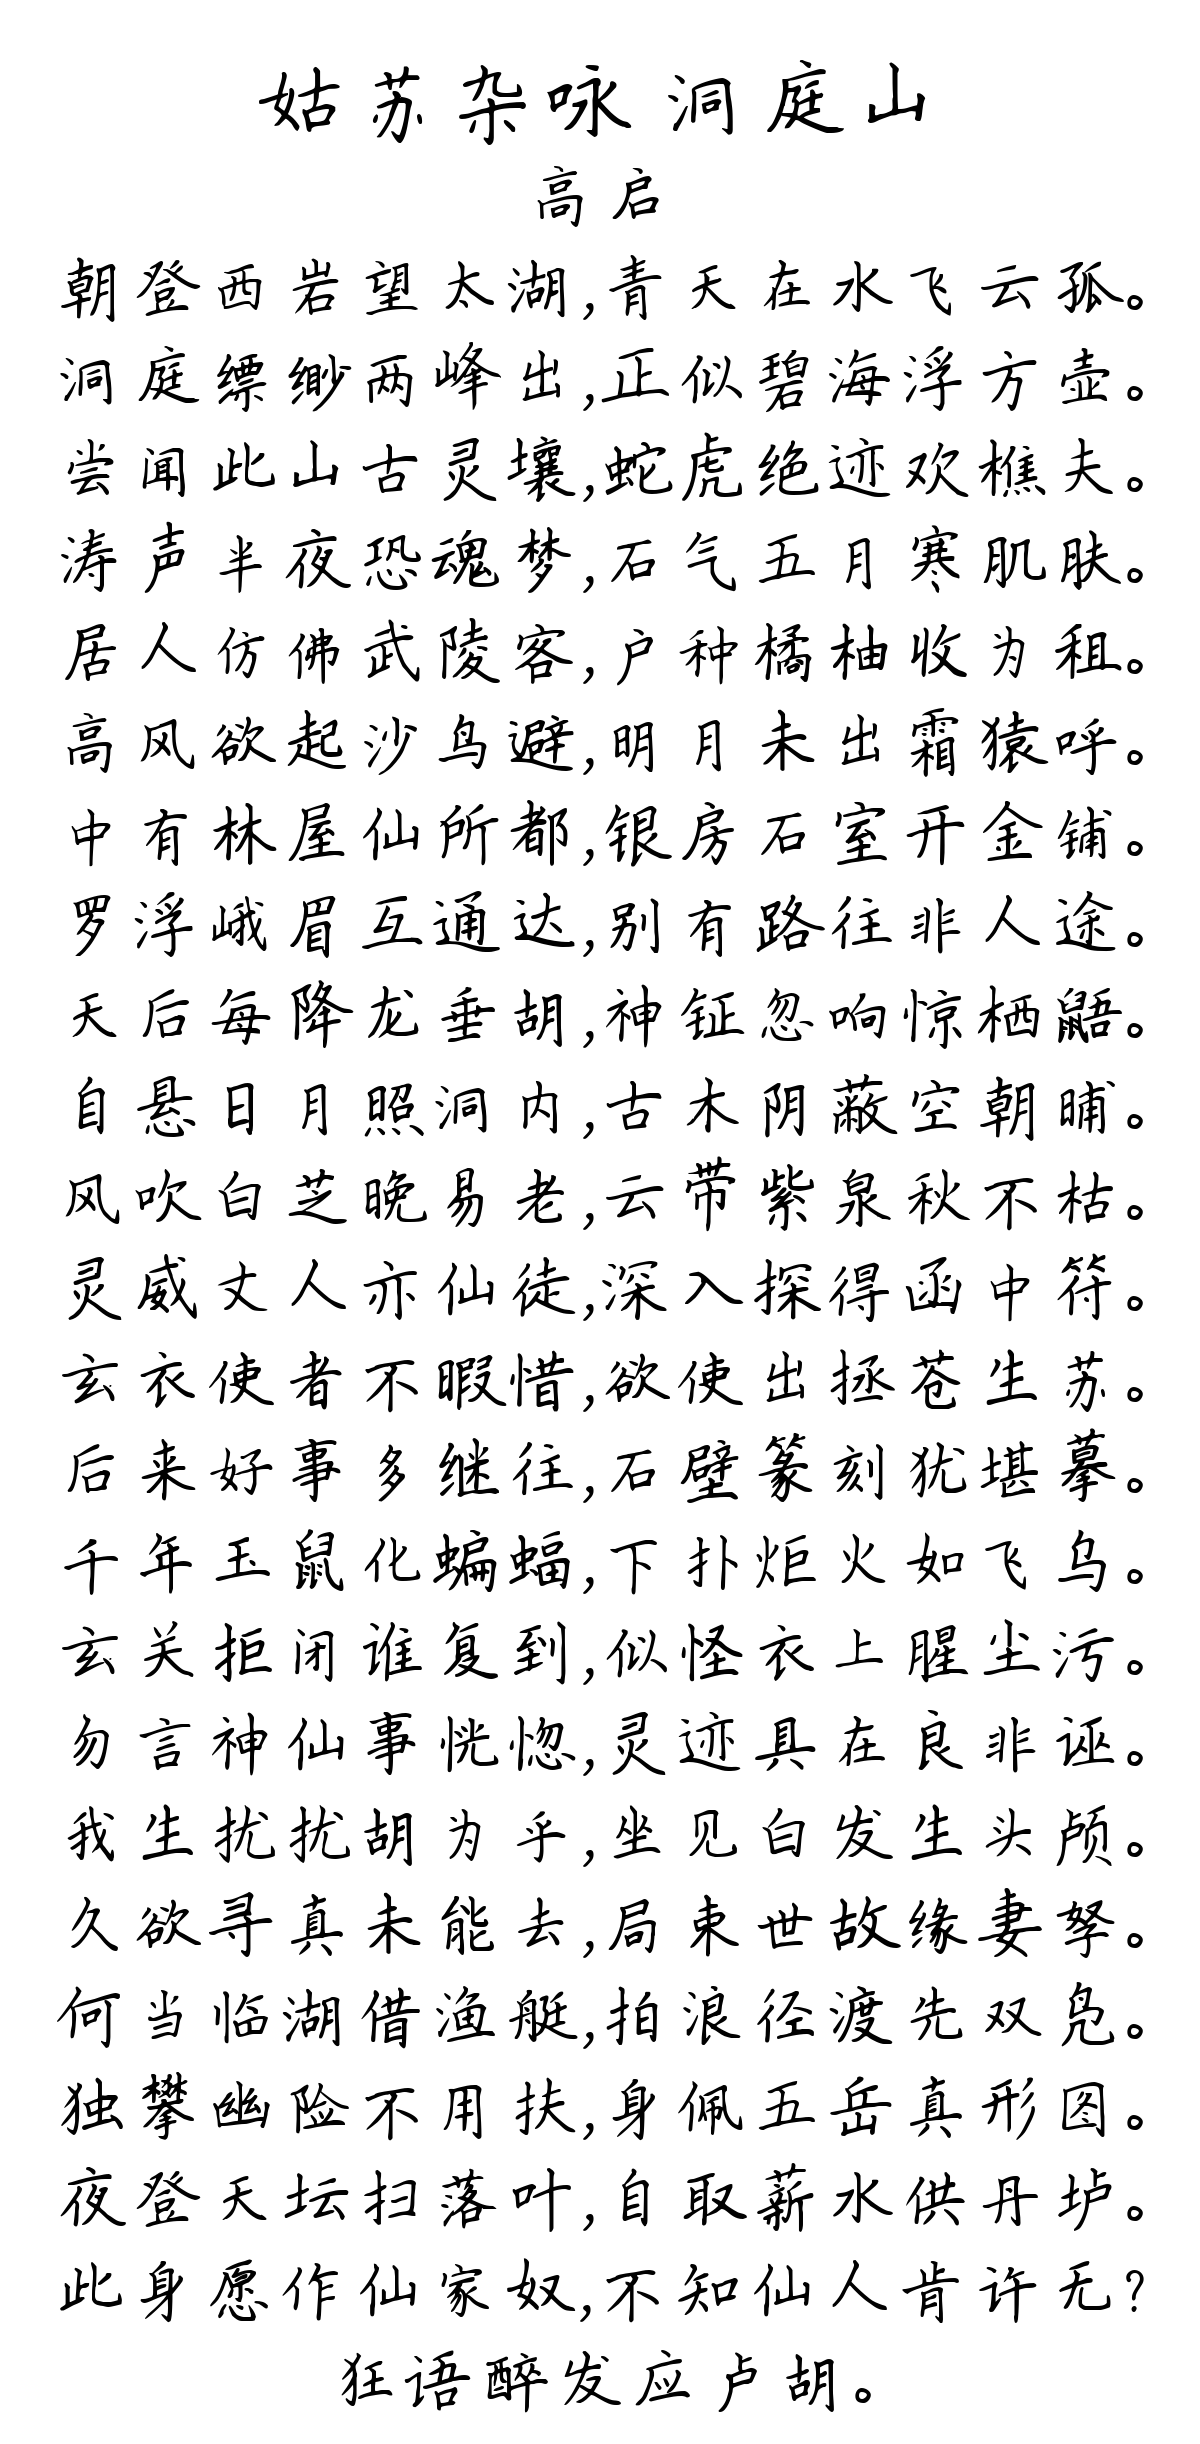 姑苏杂咏 洞庭山
高启
朝登西岩望太湖,青天在水飞云孤。
洞庭缥缈两峰出,正似碧海浮方壶。
尝闻此山古灵壤,蛇虎绝迹欢樵夫。
涛声半夜恐魂梦,石气五月寒肌肤。
居人仿佛武陵客,户种橘柚收为租。
高风欲起沙鸟避,明月未出霜猿呼。
中有林屋仙所都,银房石室开金铺。
罗浮峨眉互通达,别有路往非人途。
天后每降龙垂胡,神钲忽响惊栖鼯。
自悬日月照洞内,古木阴蔽空朝晡。
风吹白芝晚易老,云带紫泉秋不枯。
灵威丈人亦仙徒,深入探得函中符。
玄衣使者不暇惜,欲使出拯苍生苏。
后来好事多继往,石壁篆刻犹堪摹。
千年玉鼠化蝙蝠,下扑炬火如飞乌。
玄关拒闭谁复到,似怪衣上腥尘污。
勿言神仙事恍惚,灵迹具在良非诬。
我生扰扰胡为乎,坐见白发生头颅。
久欲寻真未能去,局束世故缘妻孥。
何当临湖借渔艇,拍浪径渡先双凫。
独攀幽险不用扶,身佩五岳真形图。
夜登天坛扫落叶,自取薪水供丹垆。
此身愿作仙家奴,不知仙人肯许无?
狂语醉发应卢胡。